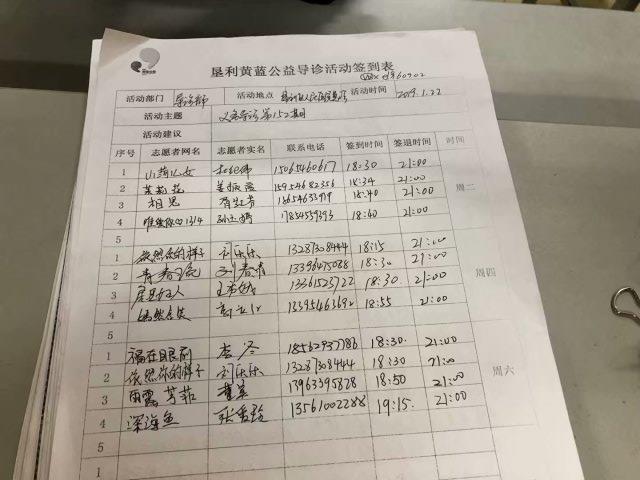 垦利黄蓝公益导诊活动签到表
活动部门 导诊部 活动地点 活动时间 2019.1.22
活动主题 义务导诊第152期
活动建议
序号 志愿者网名 志愿者实名 联系电话 签到时间 签退时间 时间
1 山莉儿女 15065460617 18:30 21:00
2 茉莉花 15954682356 18:34 21:00 周二
3 相思 18654633919 18:40 21:00
4 唯维你1314 17854559393 18:40 21:00
5
1 依然你的样子 刘乐乐 13287308444 18:15 21:00
2 青春 刘春 13396475088 18:30 21:00 周四
3 13361523722 18:30 21:00
4 嫣然含笑 13395463692 18:55 21:00
5
1 福在眼前 李冬 18562937786 18:30 21:00
2 依然你的样子 刘乐乐 13287308444 18:30 21:00 周六
3 雨露芳菲 董 13963395828 18:50 21:00
4 深海鱼 张 13561002288 19:15 21:00
5
1